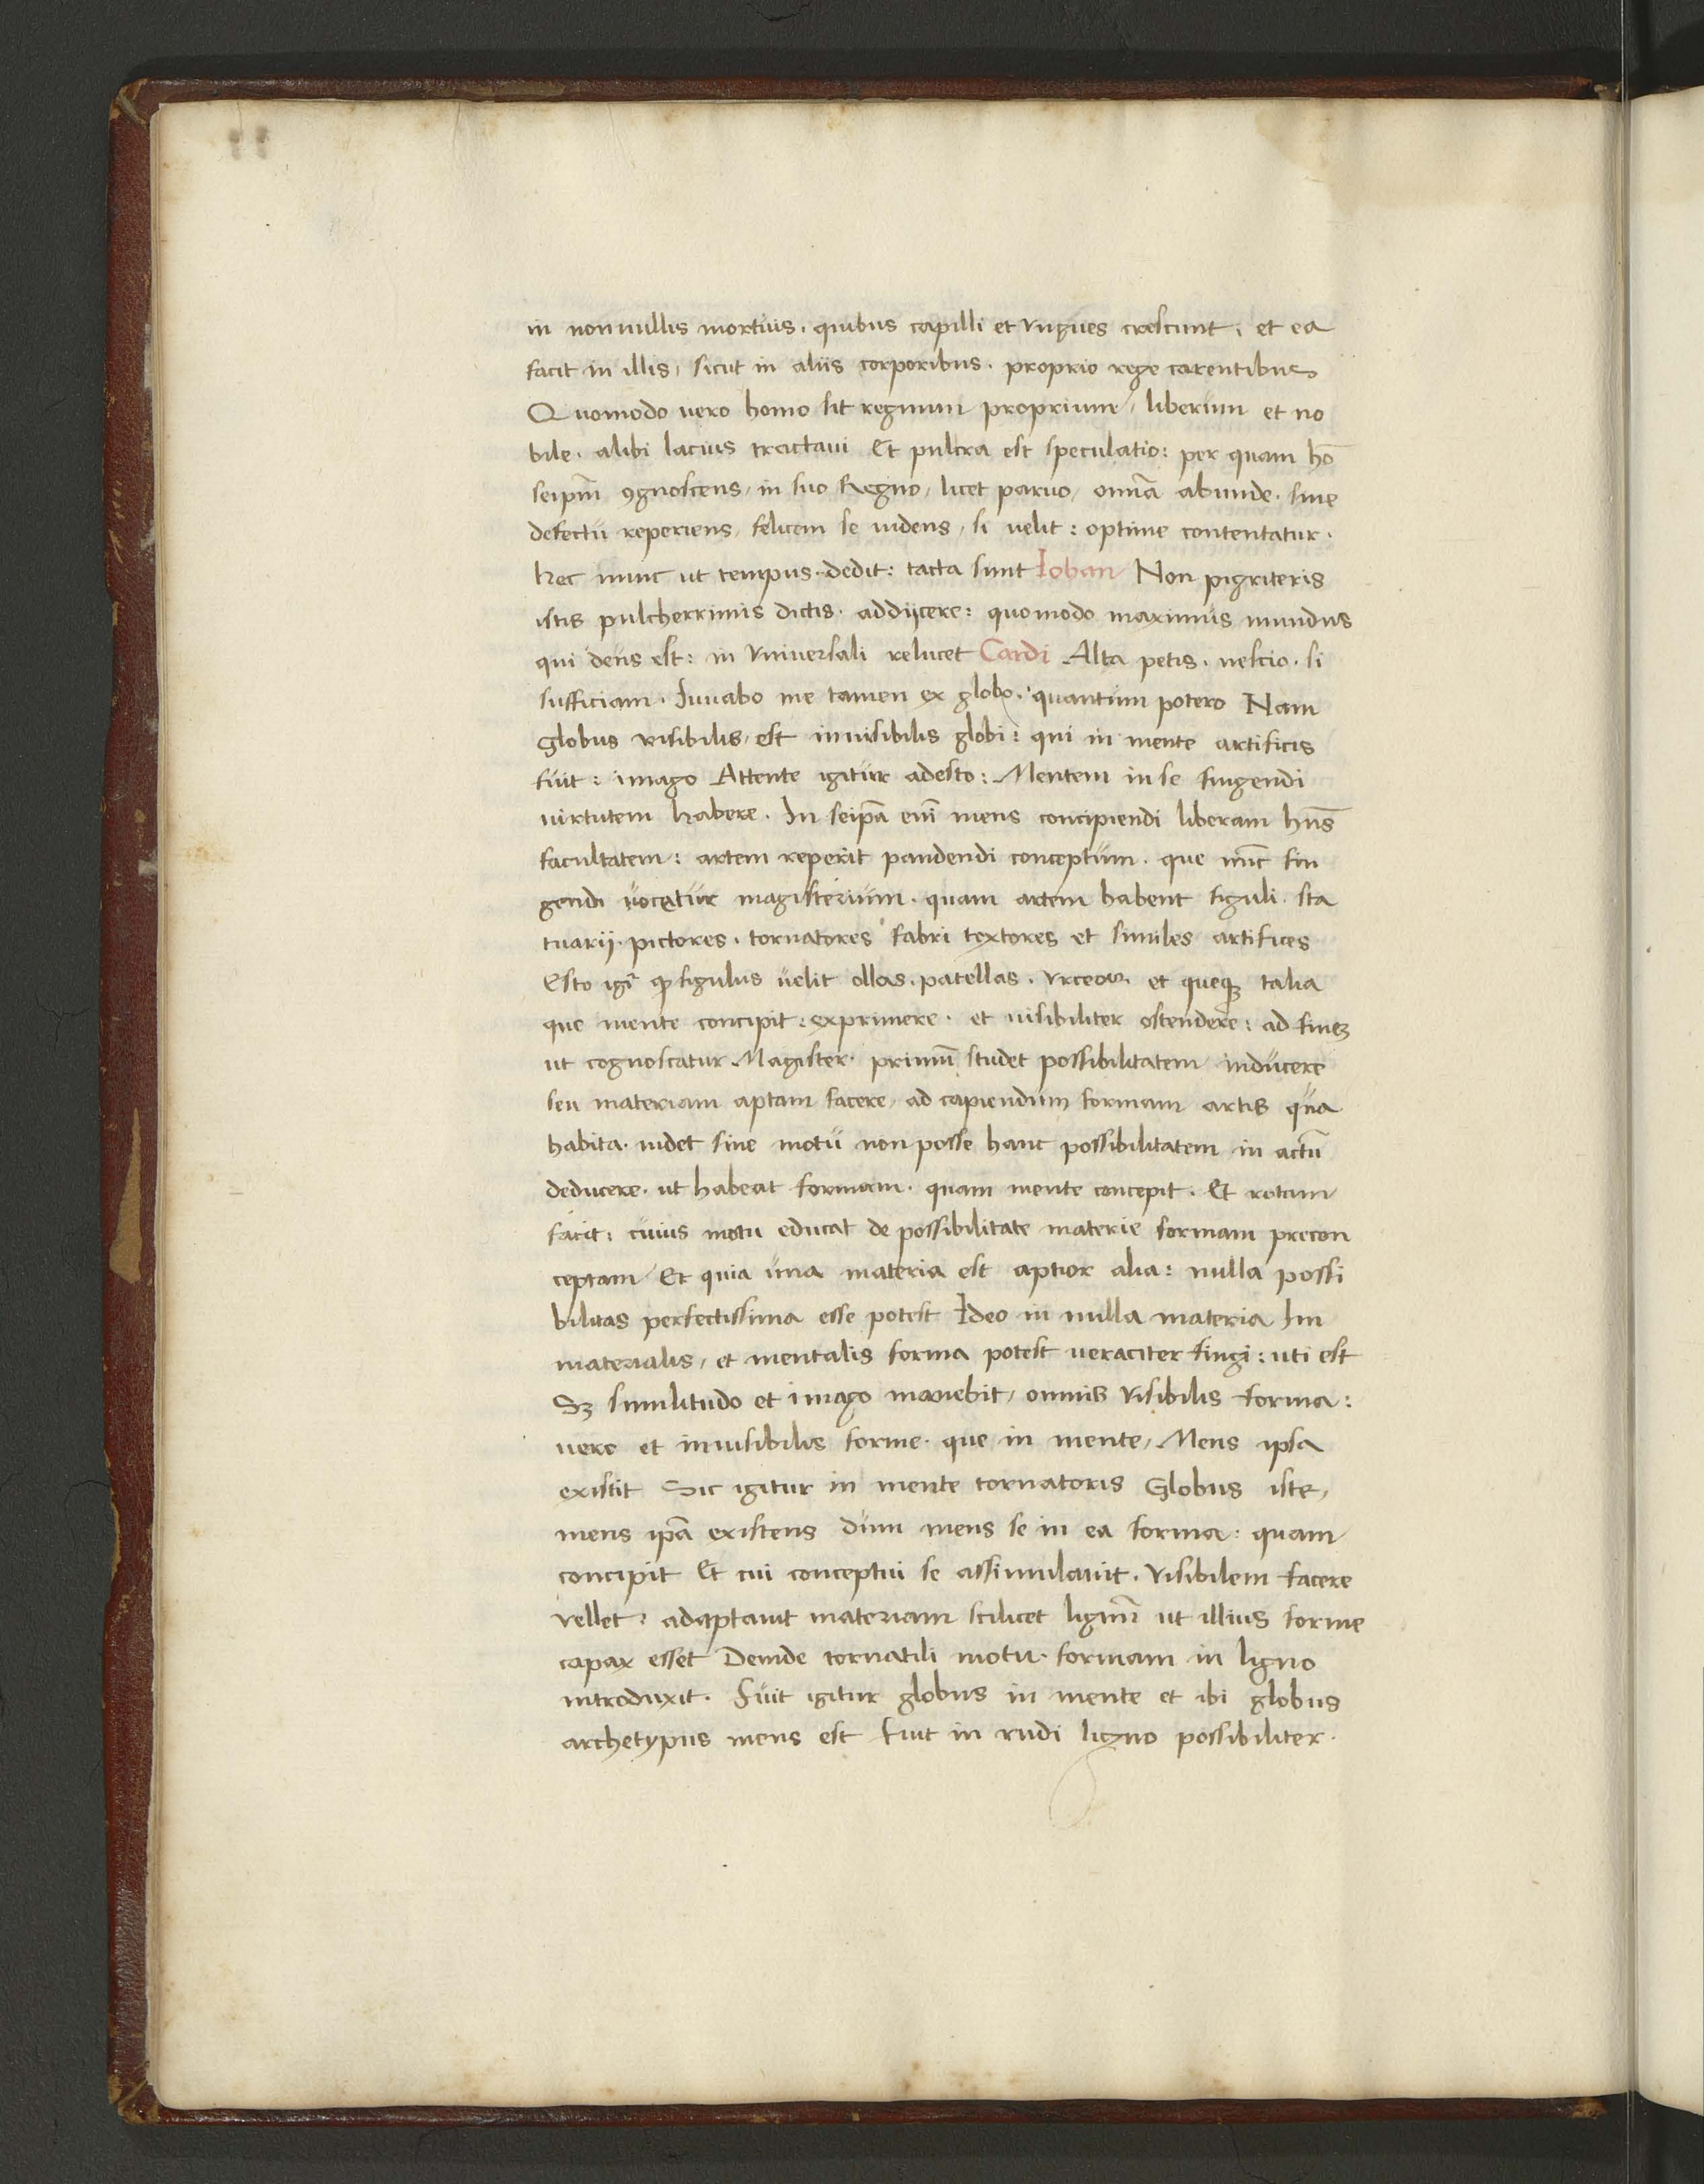 in nonnullis mortuis. quibus capilli et vngues crescunt. et ea
facit in illis, sicut in aliis corporibus. proprio rege carentibus
Quomodo uero homo sit regnum proprium, liberum et no
bile. alibi lacius tractaui Et pulcra est speculatio: per quam hō
seipm̄ ꝯgnoscens, in suo Regno, licet paruo, omīa abunde. sine
defectu reperiens, felicem se uidens, si uelit: optime contentatur.
hec nunc ut tempus. dedit: tacta sunt Iohan Non pigriteris
istis pulcherrimis dictis. addijcere: quomodo maximus mundus
qui deus est: in vniuersali relucet Cardi Alta petis. nescio. si
sufficiam. Iuuabo me tamen ex globo. quantum potero Nam
globus visibilis, est inuisibilis globi: qui in mente artificis
fuit: imago Attente igitur adesto: Mentem in se fingendi
uirtutem habere. In seipā enī mens concipiendi liberam hn̄s
facultatem: artem reperit pandendi conceptum. que nūc fin
gendi uocetur magisterium. quam artem habent figuli. sta
tuarij. pictores. tornatores fabri textores et similes artifices
Esto igr̄ ꝙ figulus uelit ollas. patellas. vrceos. et queqꝫ talia
que mente concipit: exprimere. et uisibiliter ostendere: ad fineꝫ
ut cognoscatur Magister. primū studet possibilitatem inducere
seu materiam aptam facere, ad capiendum formam artis qua
habita. uidet sine motu non posse hanc possibilitatem in actū
deducere. ut habeat formam. quam mente concepit. Et rotam
facit: cuius motu educat de possibilitate materie formam precon
ceptam Et quia una materia est aptior alia: nulla possi
bilitas perfectissima esse potest Ideo in nulla materia Im
materialis, et mentalis forma potest ueraciter fingi: uti est
Sꝫ similitudo et imago manebit, omnis visibilis forma:
uere et inuisibilis forme. que in mente, Mens ipsa
existit Sic igitur in mente tornatoris Globus iste,
mens ipā existens dum mens se in ea forma: quam
concipit Et cui conceptui se assimulauit. visibilem facere
vellet: adaptauit materiam scilicet lignū ut illius forme
capax esset Deinde tornatili motu. formam in ligno
introduxit. Fuit igitur globus in mente et ibi globus
archetypus mens est fuit in rudi ligno possibiliter.